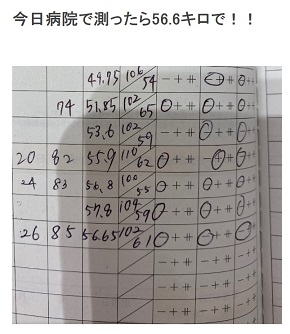 今日病院で測ったら56.6キロで！！
49.75 106/54 - + ⧺ - + ⧺ - + ⧺
74 51.85 102/65 - + ⧺ - + ⧺ - + ⧺
53.6 102/59 - + ⧺ - + ⧺ - + ⧺
20 82 55.9 110/62 - + ⧺ - + ⧺ - + ⧺
24 83 56.8 100/55 - + ⧺ - + ⧺ - + ⧺
57.8 104/59 - + ⧺ - + ⧺ - + ⧺
26 85 56.65 102/61 - + ⧺ - + ⧺ - + ⧺
- + ⧺ - + ⧺ - + ⧺